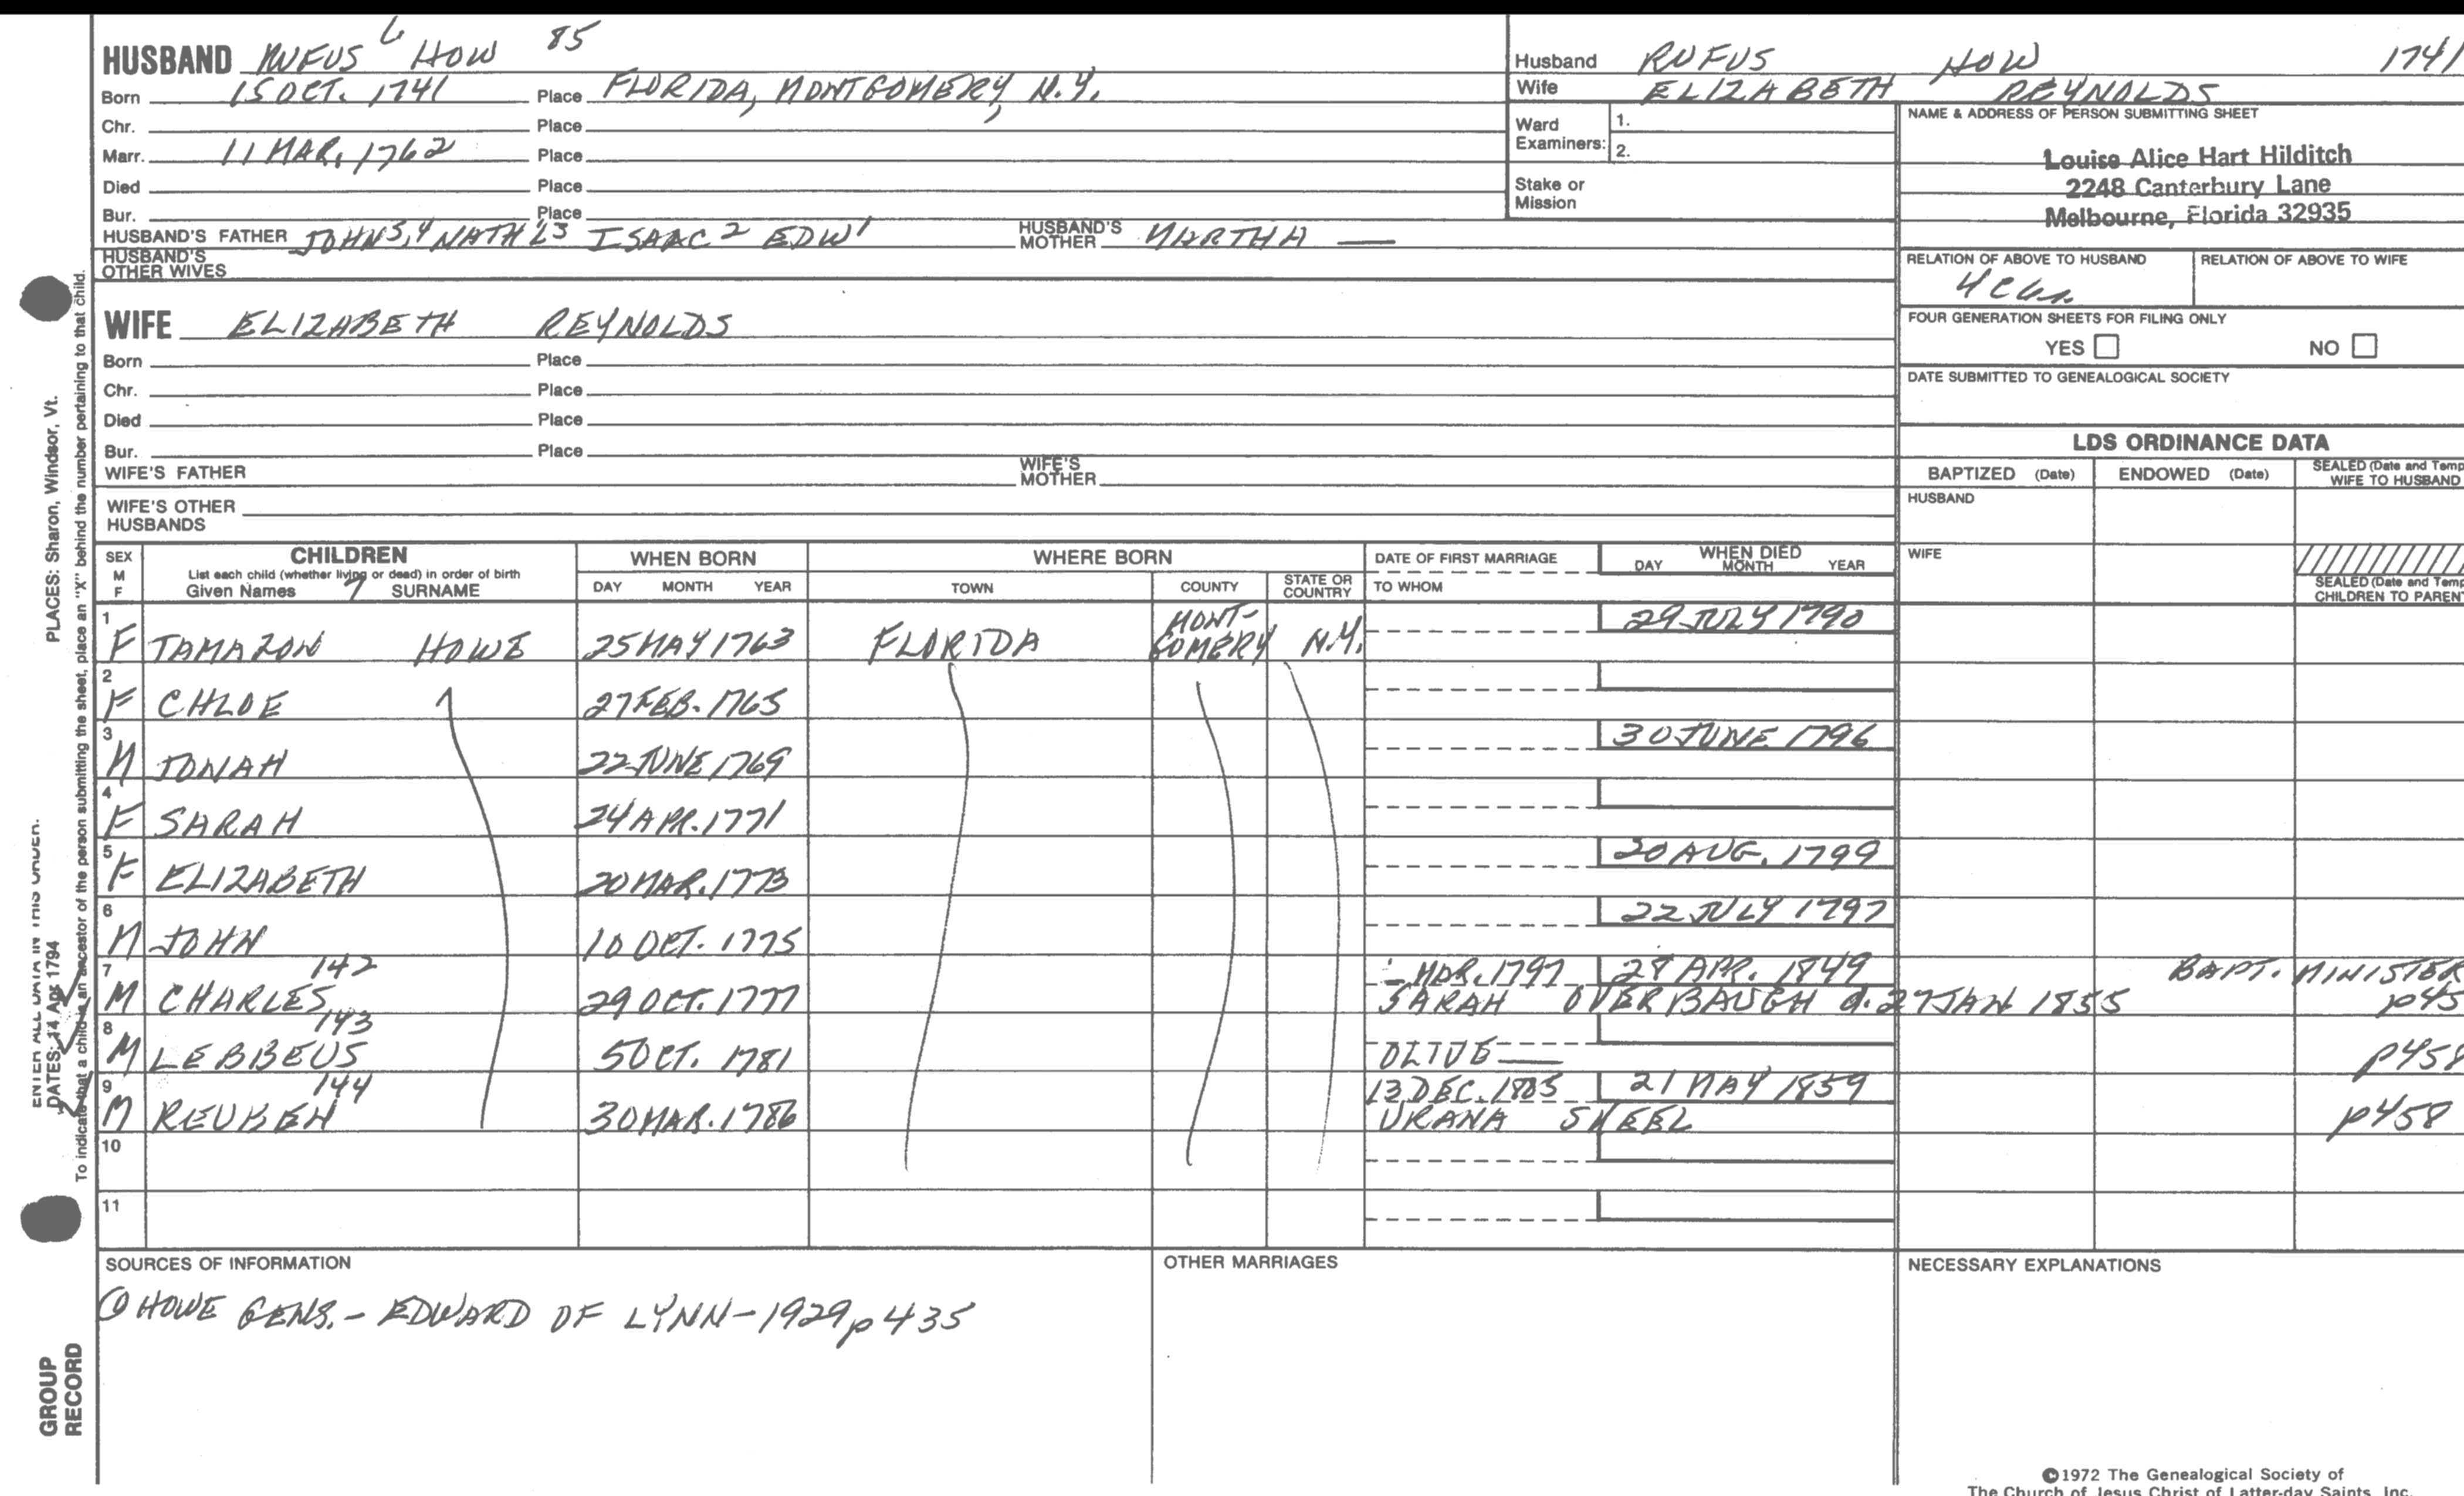 HUSBAND RUFUS 6 HOW 85
Born 15 OCT. 1741 Place FLORIDA, MONTGOMERY, N.Y.
Chr. Place
Marr. 11 MAR. 1762 Place
Died Place
Bur. Place
HUSBAND'S FATHER JOHN 5,4 NATH'L 3 ISAAC 2 EDW 1 HUSBAND'S MOTHER MARTHA —
HUSBAND'S OTHER WIVES
Husband RUFUS HOW 1741
Wife ELIZABETH REYNOLDS
Ward Examiners: 1.
2.
Stake or Mission
NAME & ADDRESS OF PERSON SUBMITTING SHEET
Louise Alice Hart Hilditch
2248 Canterbury Lane
Melbourne, Florida 32935
RELATION OF ABOVE TO HUSBAND RELATION OF ABOVE TO WIFE
FOUR GENERATION SHEETS FOR FILING ONLY
YES NO
DATE SUBMITTED TO GENEALOGICAL SOCIETY
WIFE ELIZABETH REYNOLDS
Born Place
Chr. Place
Died Place
Bur. Place
WIFE'S FATHER WIFE'S MOTHER
WIFE'S OTHER HUSBANDS
LDS ORDINANCE DATA
BAPTIZED (Date) ENDOWED (Date) SEALED (Date and Temp
WIFE TO HUSBAND
HUSBAND
WIFE
SEALED (Date and Temp
CHILDREN TO PARENT
SEX M F CHILDREN WHEN BORN WHERE BORN DATE OF FIRST MARRIAGE WHEN DIED
List each child (whether living or dead) in order of birth
Given Names 7 SURNAME DAY MONTH YEAR TOWN COUNTY STATE OR COUNTRY TO WHOM DAY MONTH YEAR
1 F TAMAZON HOWE 25 MAY 1763 FLORIDA MONT-GOMERY N.Y. 29 JULY 1790
2 F CHLOE 27 FEB. 1765
3 M JONAH 22 JUNE 1769 30 JUNE 1796
4 F SARAH 24 APR. 1771
5 F ELIZABETH 20 MAR. 1773 20 AUG. 1799
6 M JOHN 10 OCT. 1775 22 JULY 1797
7 M CHARLES 142 29 OCT. 1777 - MAR. 1797 28 APR. 1849 BAPT. MINISTER
SARAH OVERBAUGH d. 27 JAN 1855 p45
8 M LEBBEUS 143 5 OCT. 1781 OLIVE — p458
9 M REUBEN 144 30 MAR. 1786 13 DEC. 1805 21 MAY 1859
URANA SKEEL p458
10
11
SOURCES OF INFORMATION
① HOWE GENS. - EDWARD OF LYNN - 1929 p 435
OTHER MARRIAGES
NECESSARY EXPLANATIONS
©1972 The Genealogical Society of
The Church of Jesus Christ of Latter-day Saints, Inc.
To indicate that a child is an ancestor of the person submitting the sheet, place an "X" behind the number pertaining to that child.
PLACES: Sharon, Windsor, Vt.
ENTER ALL DATA IN THIS ORDER.
DATES: 14 Apr 1794
GROUP
RECORD